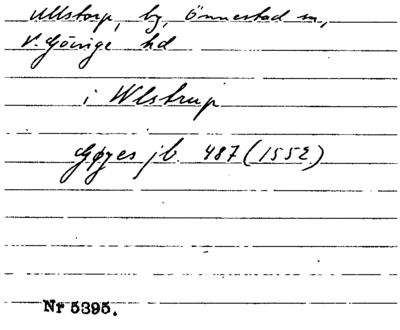 Ullstorp, by, Önnestad sn,
V. Göinge hd
i Wlstrup
Gøyes jb. 487 (1552)
Nr 5395.